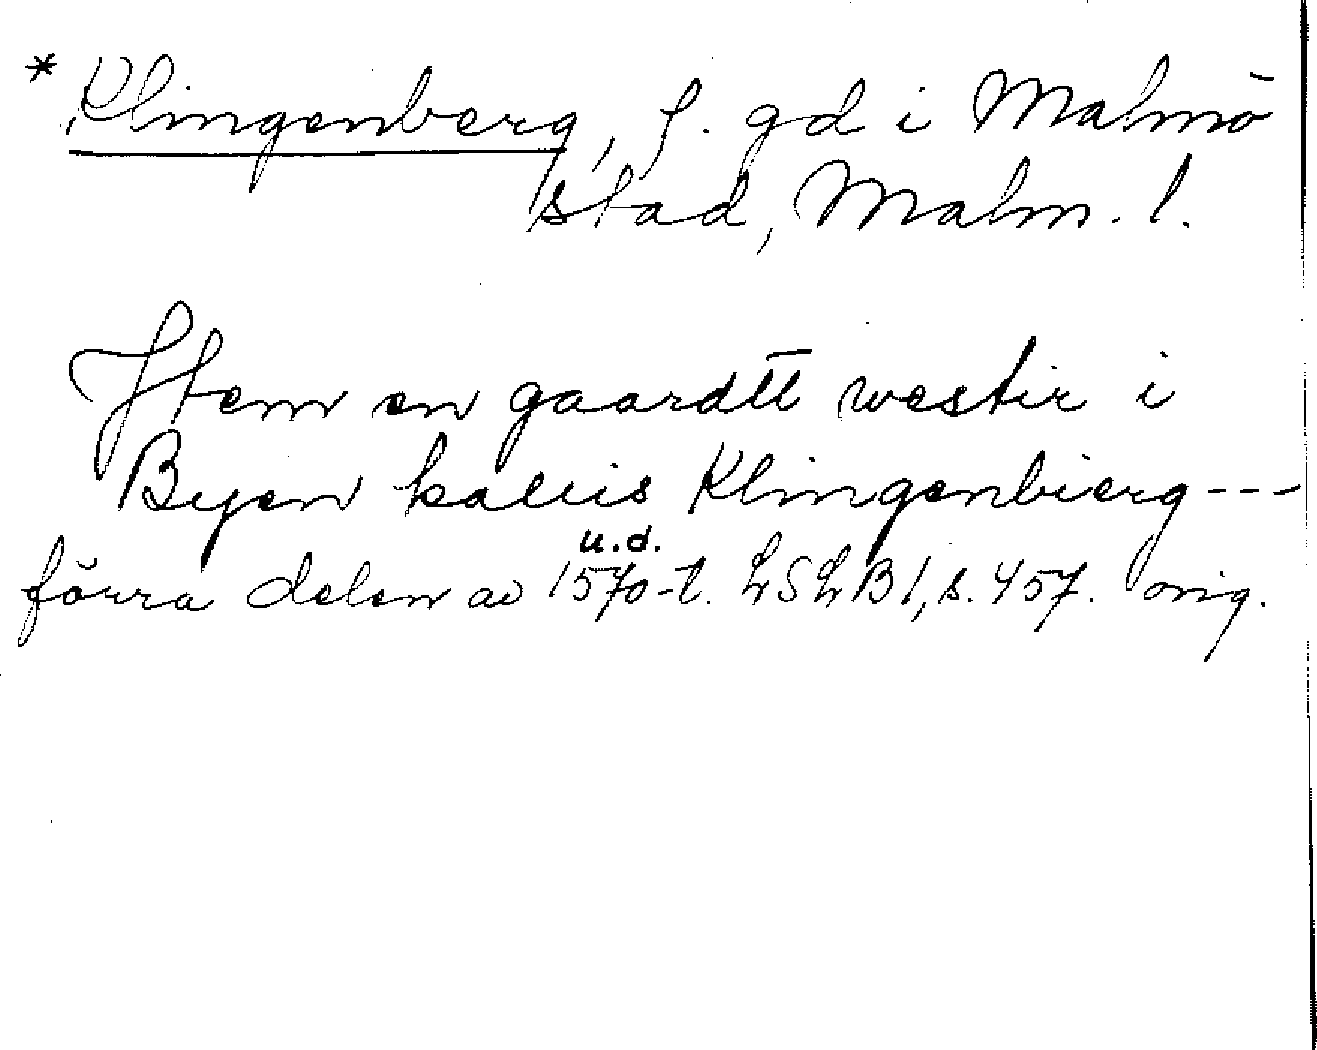 * Klingenberg, f. gd i Malmö
stad, Malm. l.
Item en gaardtt westir i
Byen kallis Klingenbierg---
u.d.
förra delen av 1570-t. LSLB1, s. 457. orig.